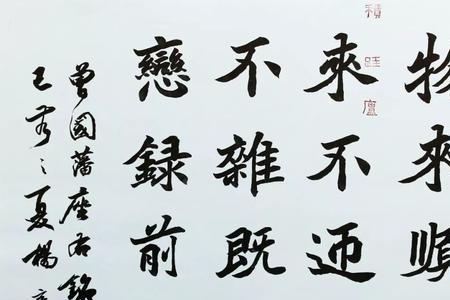 物來順
來不迎
不雜既
戀録前
曾國藩座右銘
己亥之夏楊
積跬廬